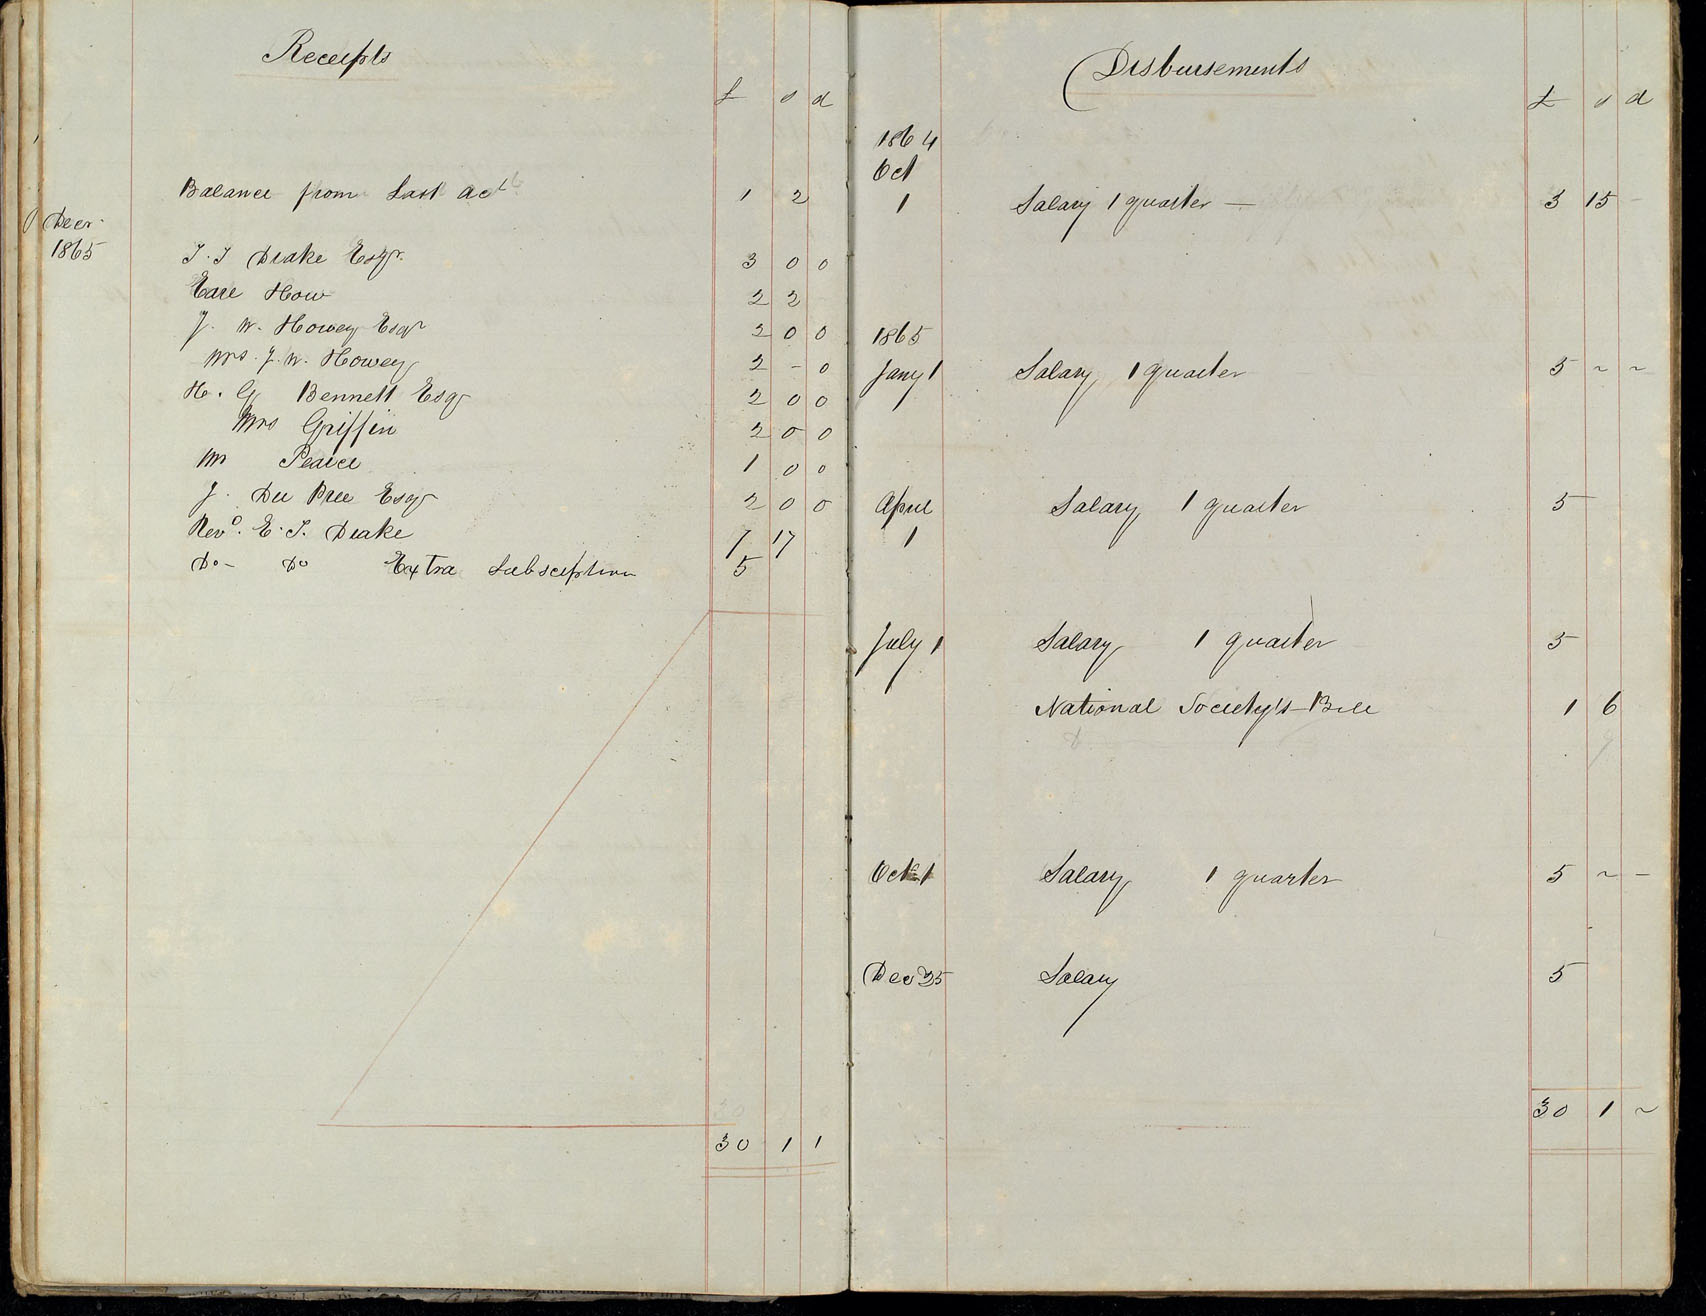 Receipts
£ s d
Balance from Last act 1 2
Decr
1865
T. T Drake Esqr. 3 0 0
Earl How 2 2
J. W. Howey Esqr 2 0 0
Mrs. J. W. Howey 2 - 0
H. G Bennett Esqr 2 0 0
Mrs Griffin 2 0 0
Mr Pearce 1 0 0
J. Du Pree Esqr 2 0 0
Revd. E. T. Drake 7 17
Do - Do Extra Subscription 5
30 1 1
Disbursements
£ s d
1864
Oct
1 Salary 1 quarter — 3 15 -
1865
Jany 1 Salary 1 quarter 5 ~ ~
April
1 Salary 1 quarter 5
July 1 Salary 1 quarter 5
National Society's Bill 1 6
Oct 1 Salary 1 quarter 5 ~ -
Dec 25 Salary 5
30 1 ~